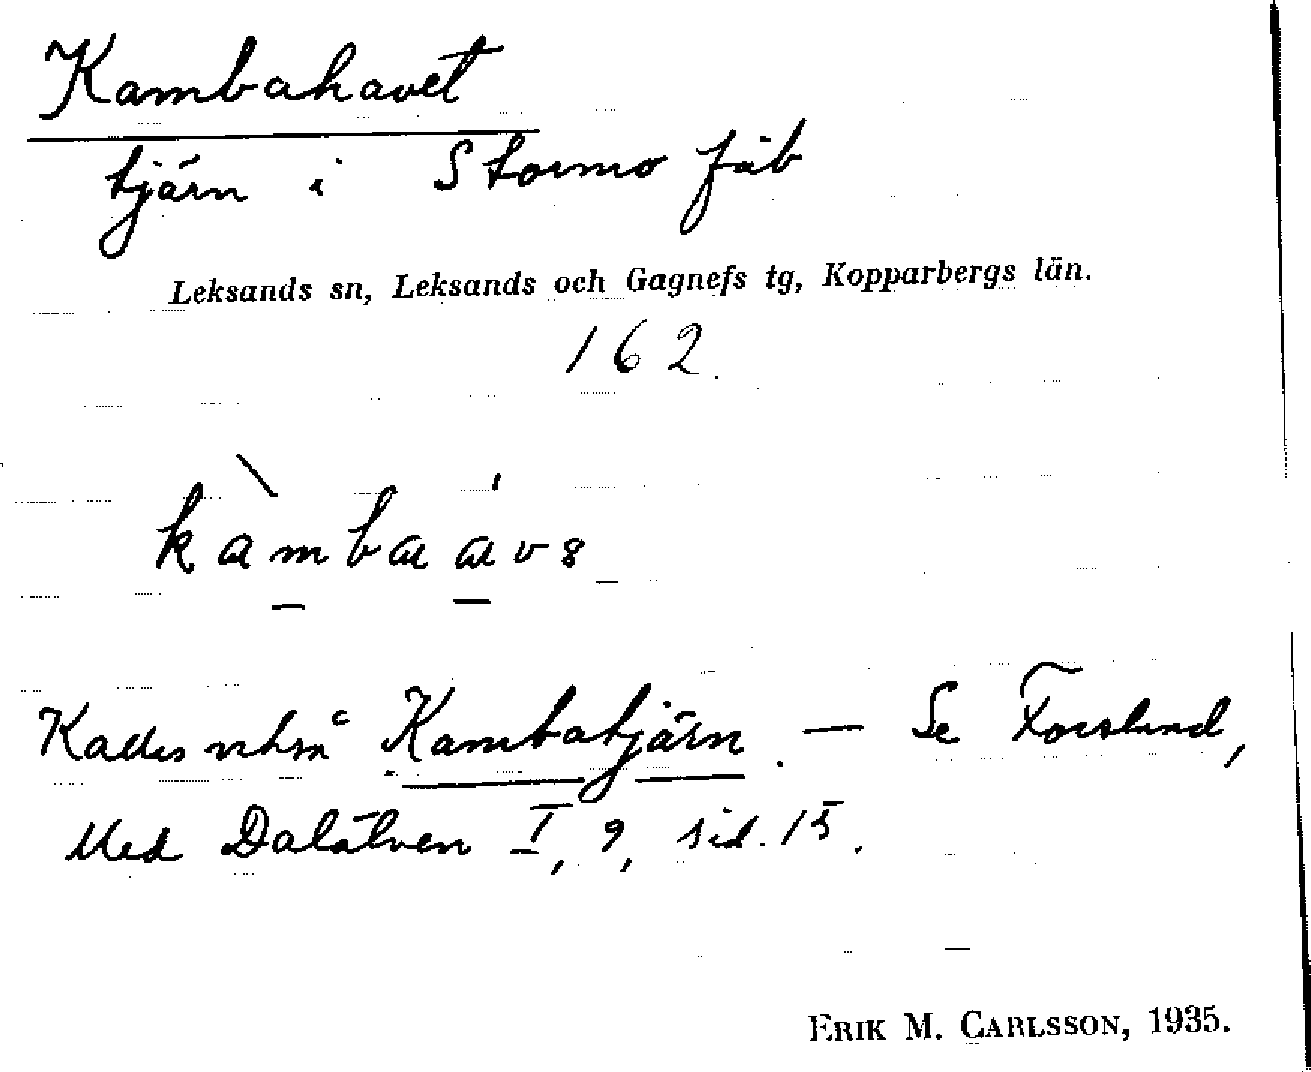 Kambahavet
tjärn i Stormo fäb
Leksands sn, Leksands och Gagnefs tg, Kopparbergs län.
162
kàmba ávə
Kallas också Kambatjärn. — Se Forslund,
Med Dalälven I, 9, sid. 15.
ERIK M. CARLSSON, 1935.